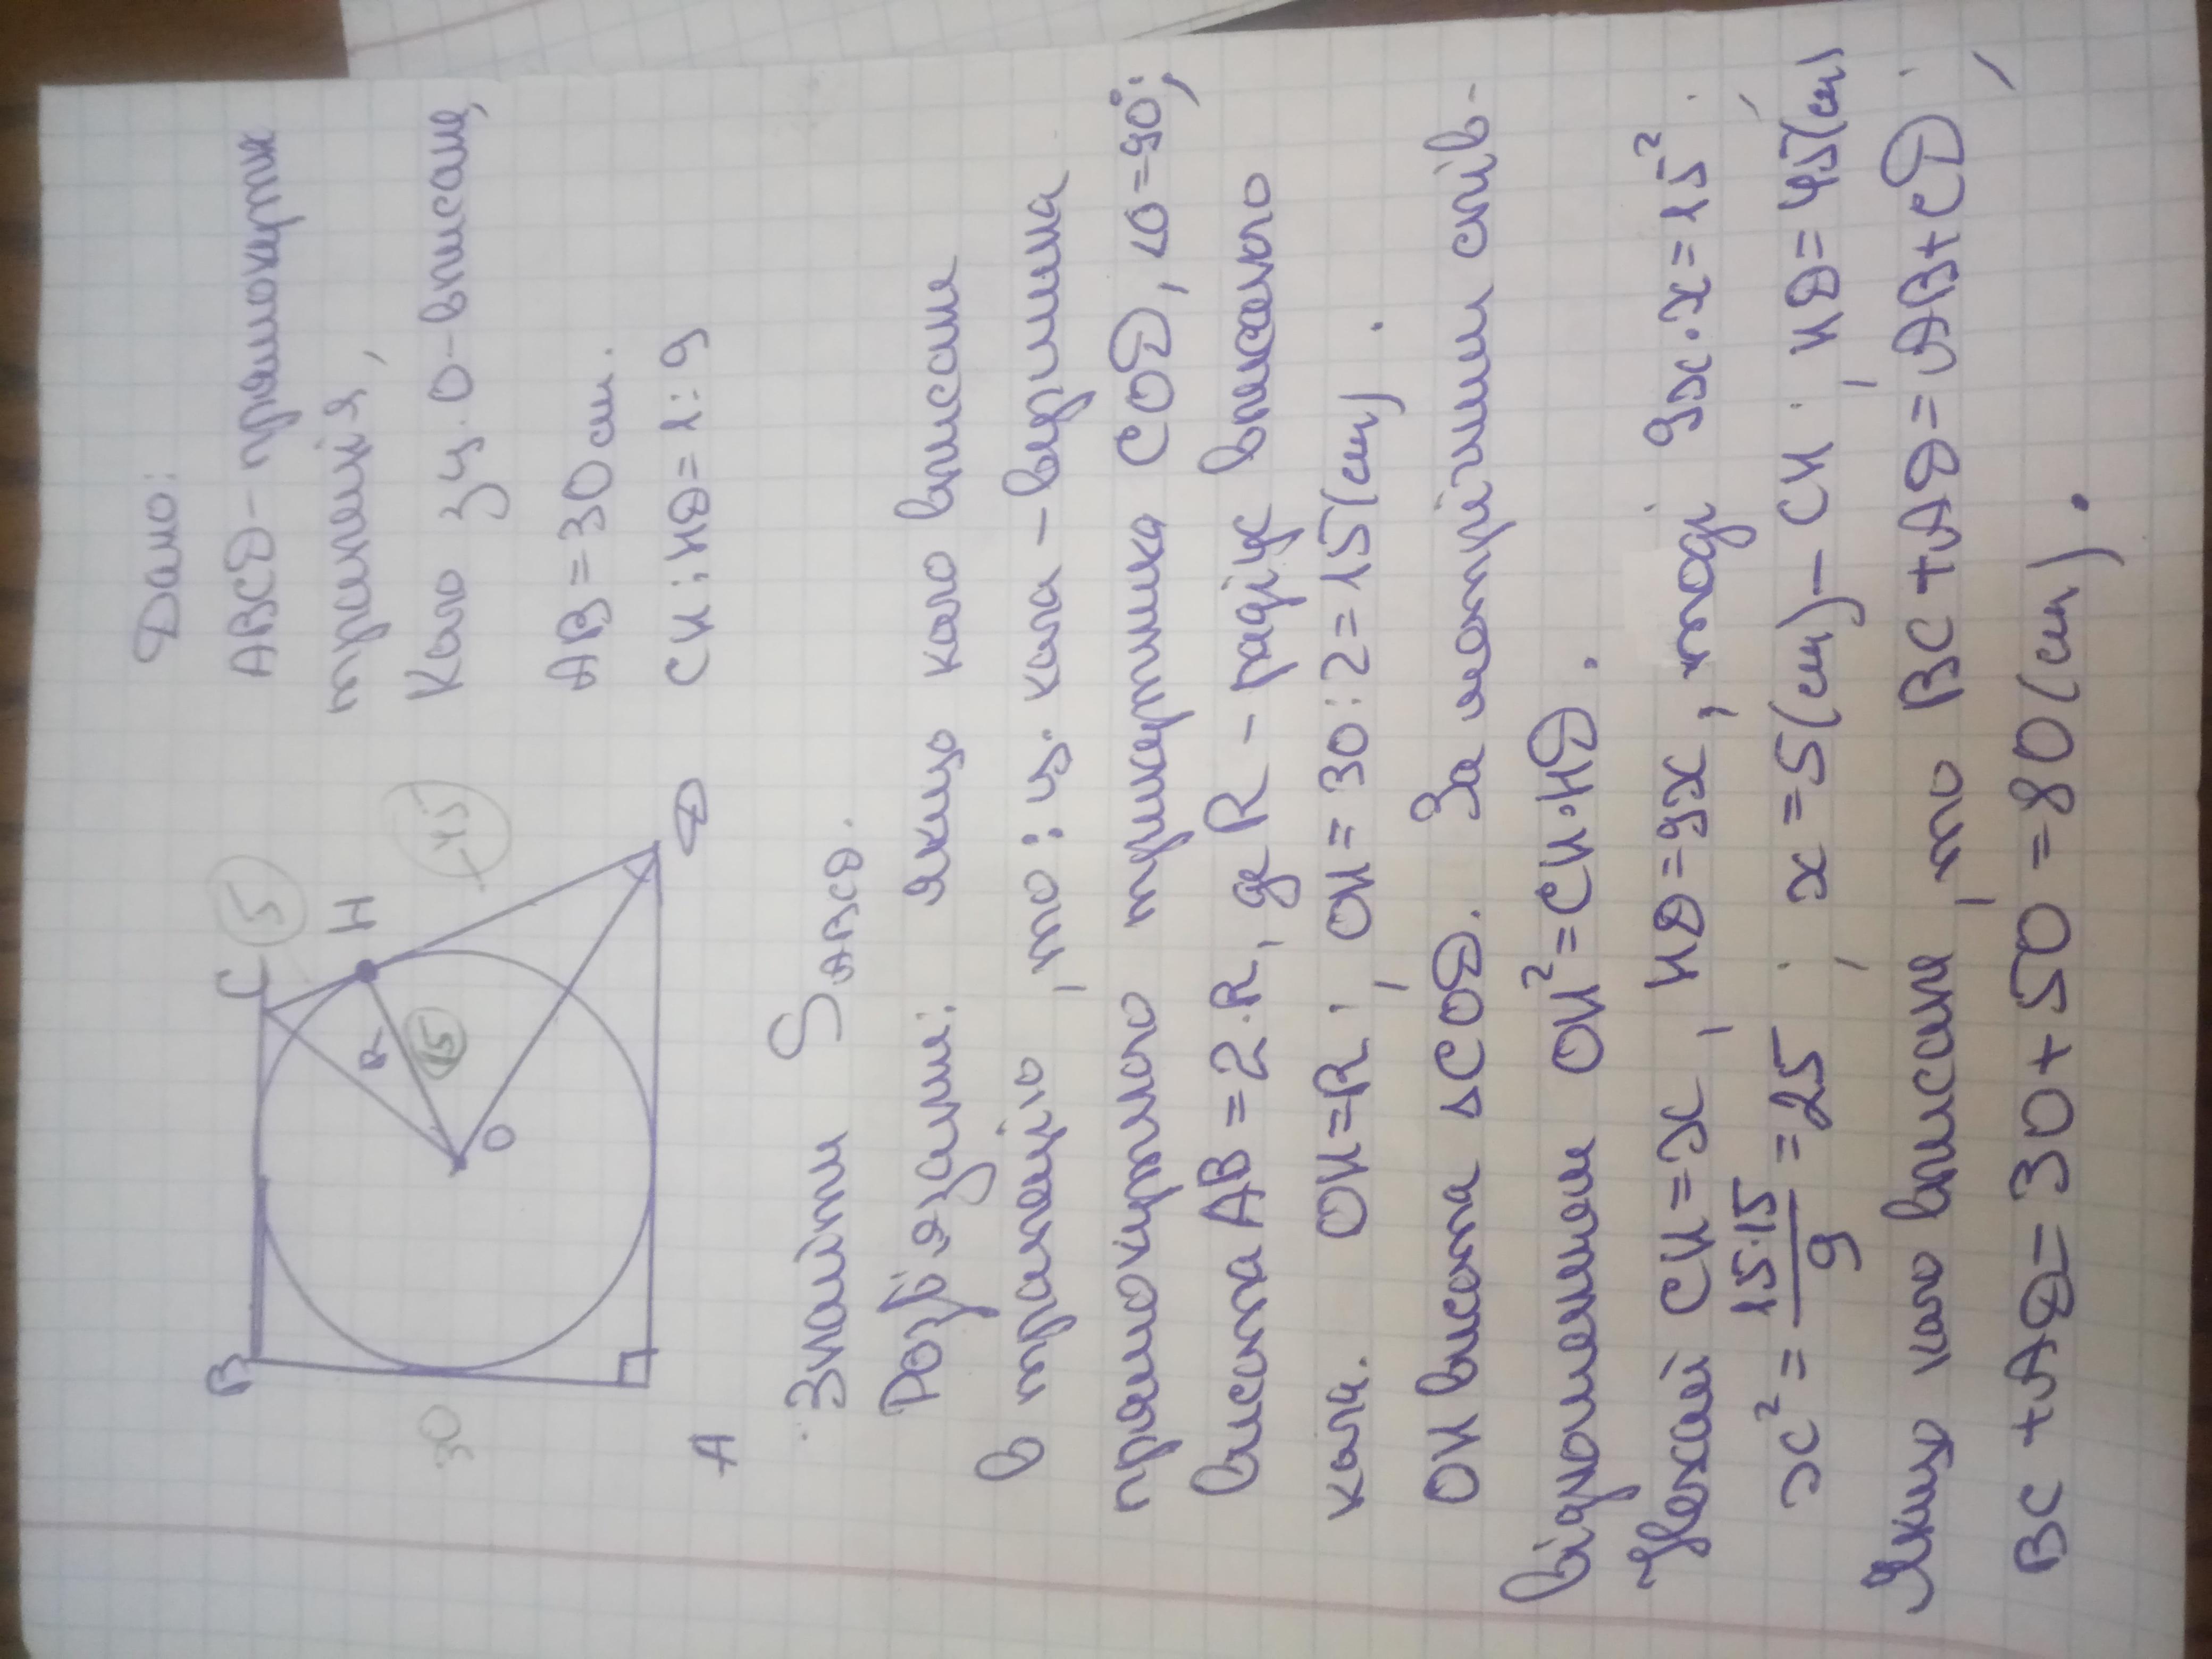 Дано:
ABCD - прямокутна
трапеція,
Коло з ц. O - вписане,
AB = 30 см.
CH : HD = 1 : 9
B
C
5
H
45
R
15
O
30
A
D
Знайти S ABCD.
Розв'язання: якщо коло вписане
в трапецію, то: ц. кола - вершина
прямокутного трикутника COD, ∠O = 90°;
висота AB = 2·R, де R - радіус вписаного
кола. OH = R; OH = 30 : 2 = 15 (см).
OH висота △COD. За метричними спів-
відношеннями OH² = CH·HD.
Нехай CH = x, HD = 9x, тоді 9x·x = 15²;
x² = 15·15/9 = 25; x = 5 (см) - CH; HD = 45 (см)
Якщо коло вписане, то BC + AD = AB + CD;
BC + AD = 30 + 50 = 80 (см).